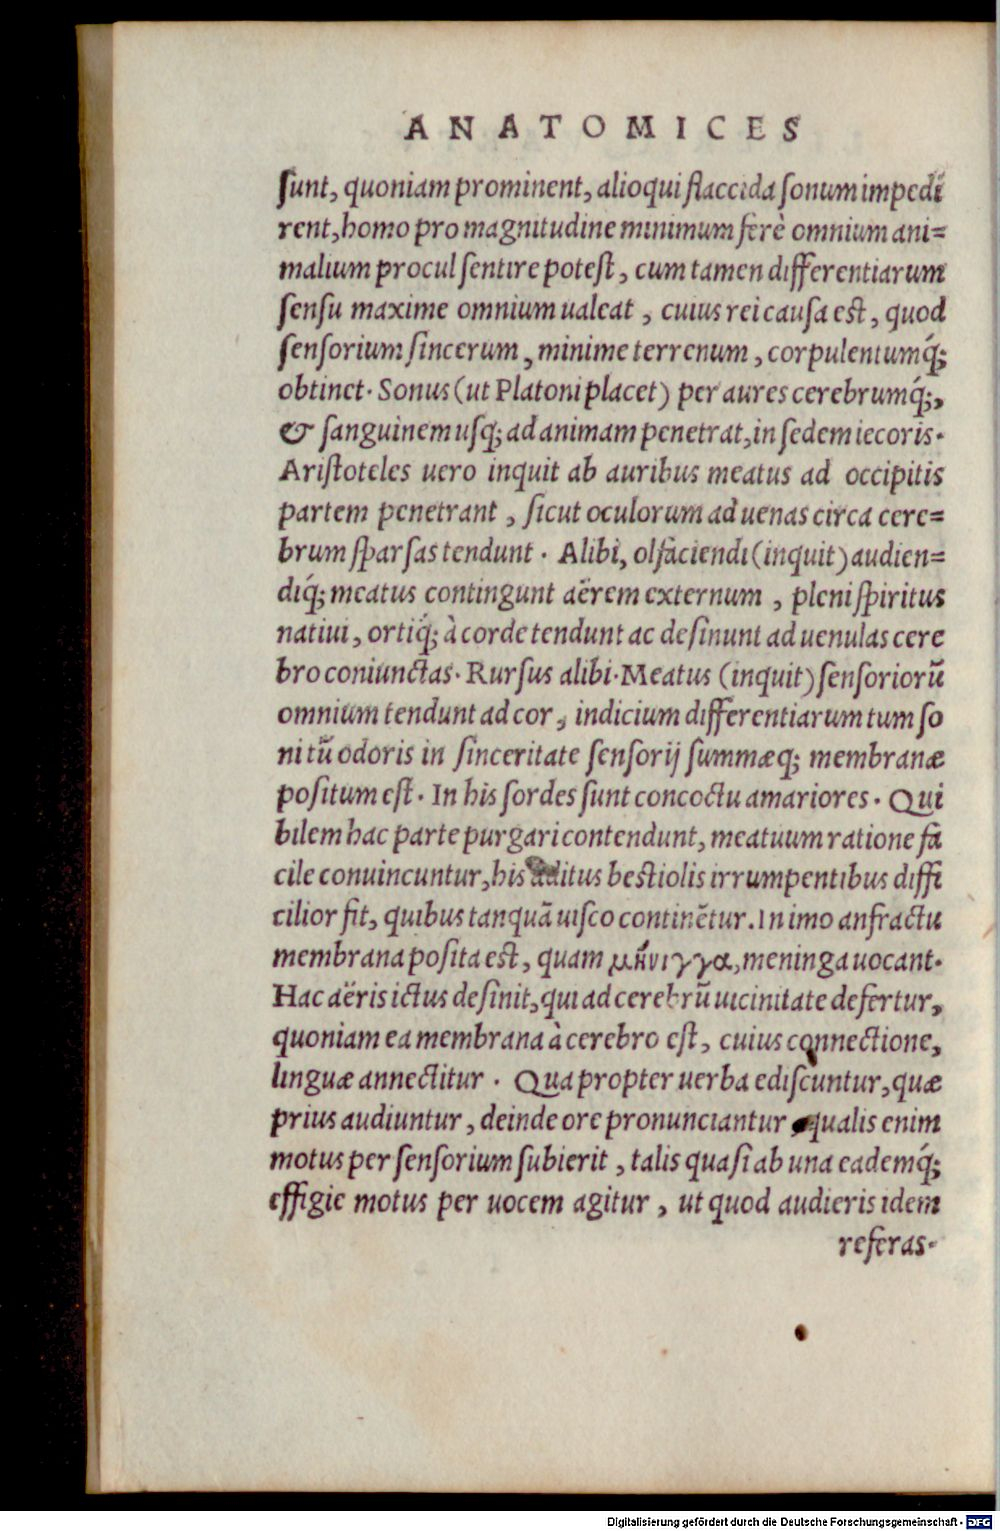 ANATOMICES
sunt, quoniam prominent, alioqui flaccida sonum impedi
rent, homo pro magnitudine minimum ferè omnium ani=
malium procul sentire potest, cum tamen differentiarum
sensu maxime omnium ualeat, cuius rei causa est, quod
sensorium sincerum, minime terrenum, corpulentumq́;
obtinet. Sonus (ut Platoni placet) per aures cerebrumq́;,
& sanguinem usq; ad animam penetrat, in sedem iecoris.
Aristoteles uero inquit ab auribus meatus ad occipitis
partem penetrant, sicut oculorum ad uenas circa cere=
brum sparsas tendunt. Alibi, olfaciendi (inquit) audien=
diq́; meatus contingunt aërem externum, pleni spiritus
natiui, ortiq́; à corde tendunt ac desinunt ad uenulas cere
bro coniunctas. Rursus alibi. Meatus (inquit) sensoriorũ
omnium tendunt ad cor, indicium differentiarum tum so
ni tũ odoris in sinceritate sensorij summæq; membranæ
positum est. In his sordes sunt concoctu amariores. Qui
bilem hac parte purgari contendunt, meatuum ratione fa
cile conuincuntur, his aditus bestiolis irrumpentibus diffi
cilior fit, quibus tanquã uisco continẽtur. In imo anfractu
membrana posita est, quam μήνιγγα, meninga uocant.
Hac aëris ictus desinit, qui ad cerebrũ uicinitate defertur,
quoniam ea membrana à cerebro est, cuius connectione,
linguæ annectitur. Qua propter uerba ediscuntur, quæ
prius audiuntur, deinde ore pronunciantur qualis enim
motus per sensorium subierit, talis quasi ab una eademq́;
effigie motus per uocem agitur, ut quod audieris idem
referas.
Digitalisierung gefördert durch die Deutsche Forschungsgemeinschaft - DFG